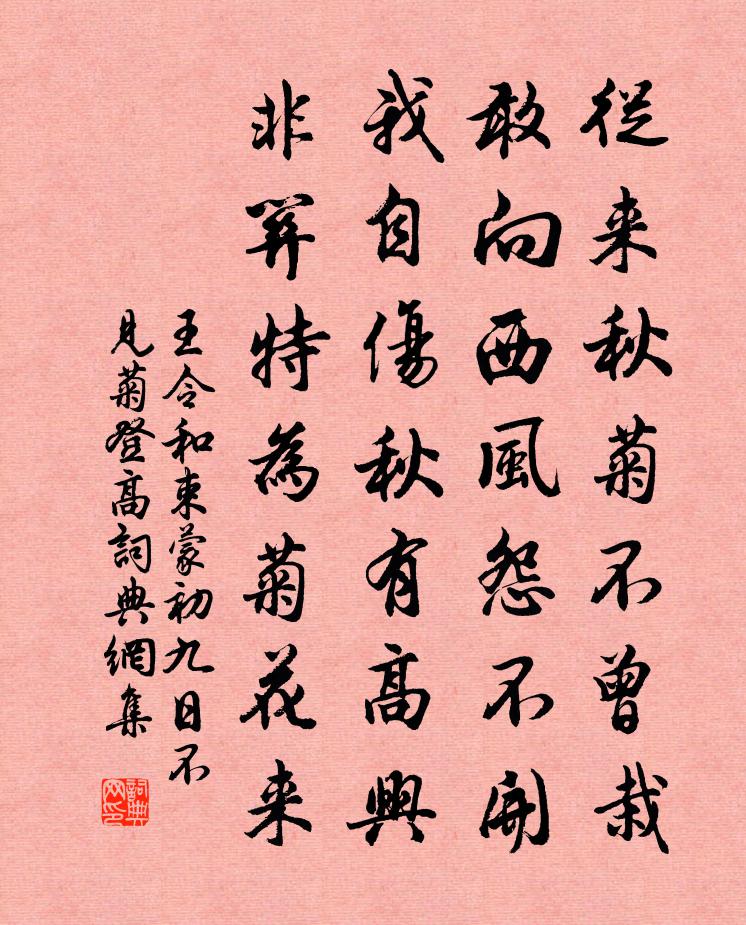 從来秋菊不曾栽
敢向西風怨不開
我自傷秋有高興
非關特為菊花来
王令和東蒙初九日不
見菊登高詞典網集
詞典网印